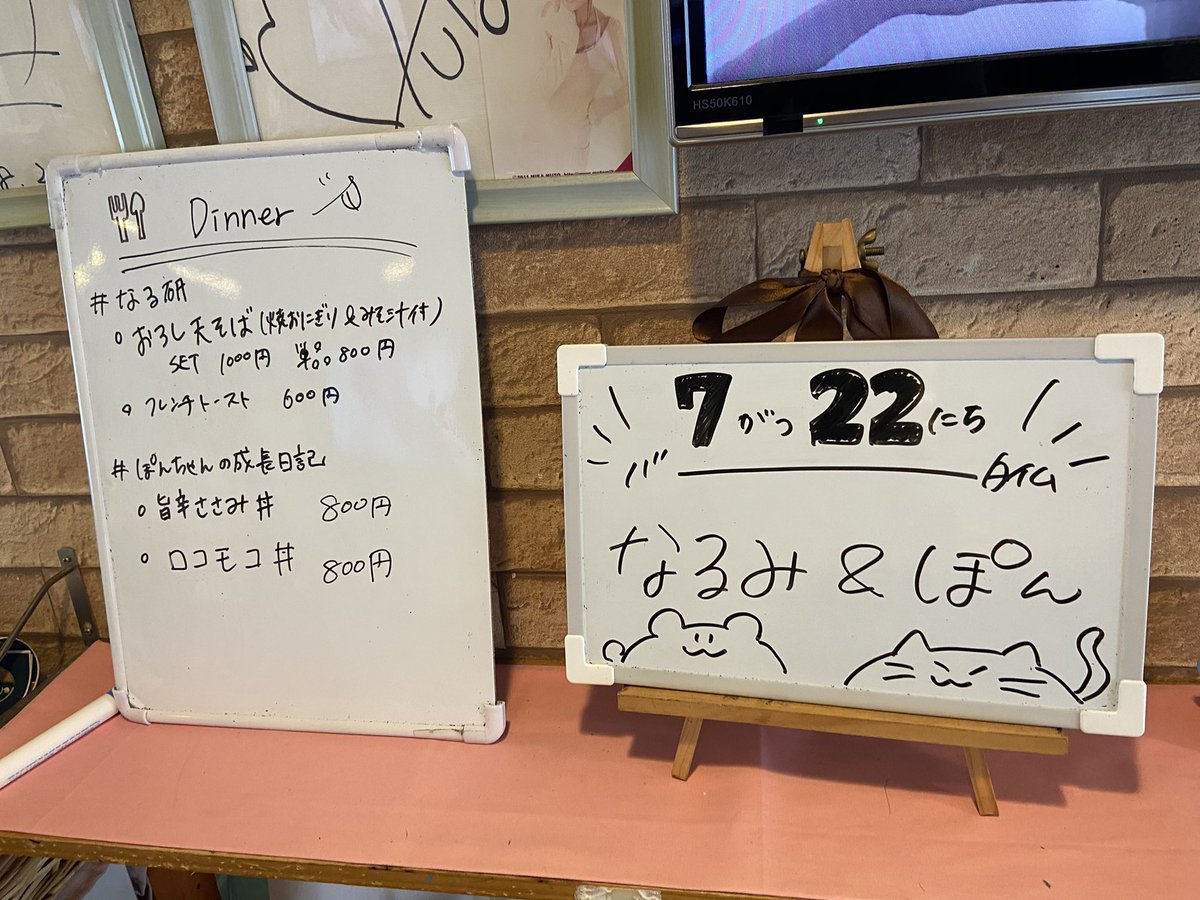 Dinner
#なる研
○おろし天そば(焼おにぎり&みそ汁付)
SET 1000円 単品 800円
○フレンチトースト 600円
#ぽんちゃんの成長日記
○旨辛ささみ丼 800円
○ロコモコ丼 800円
HS50K610
7がつ22にち
バータイム
なるみ&ぽん